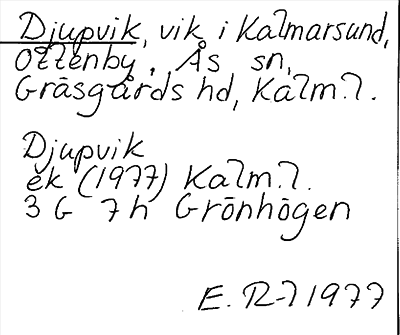 Djupvik, vik i Kalmarsund,
Ottenby, Ås sn,
Gräsgårds hd, Kalm.l.
Djupvik
ek (1977) Kalm.l.
3 G 7 h Grönhögen
E. R-l 1977